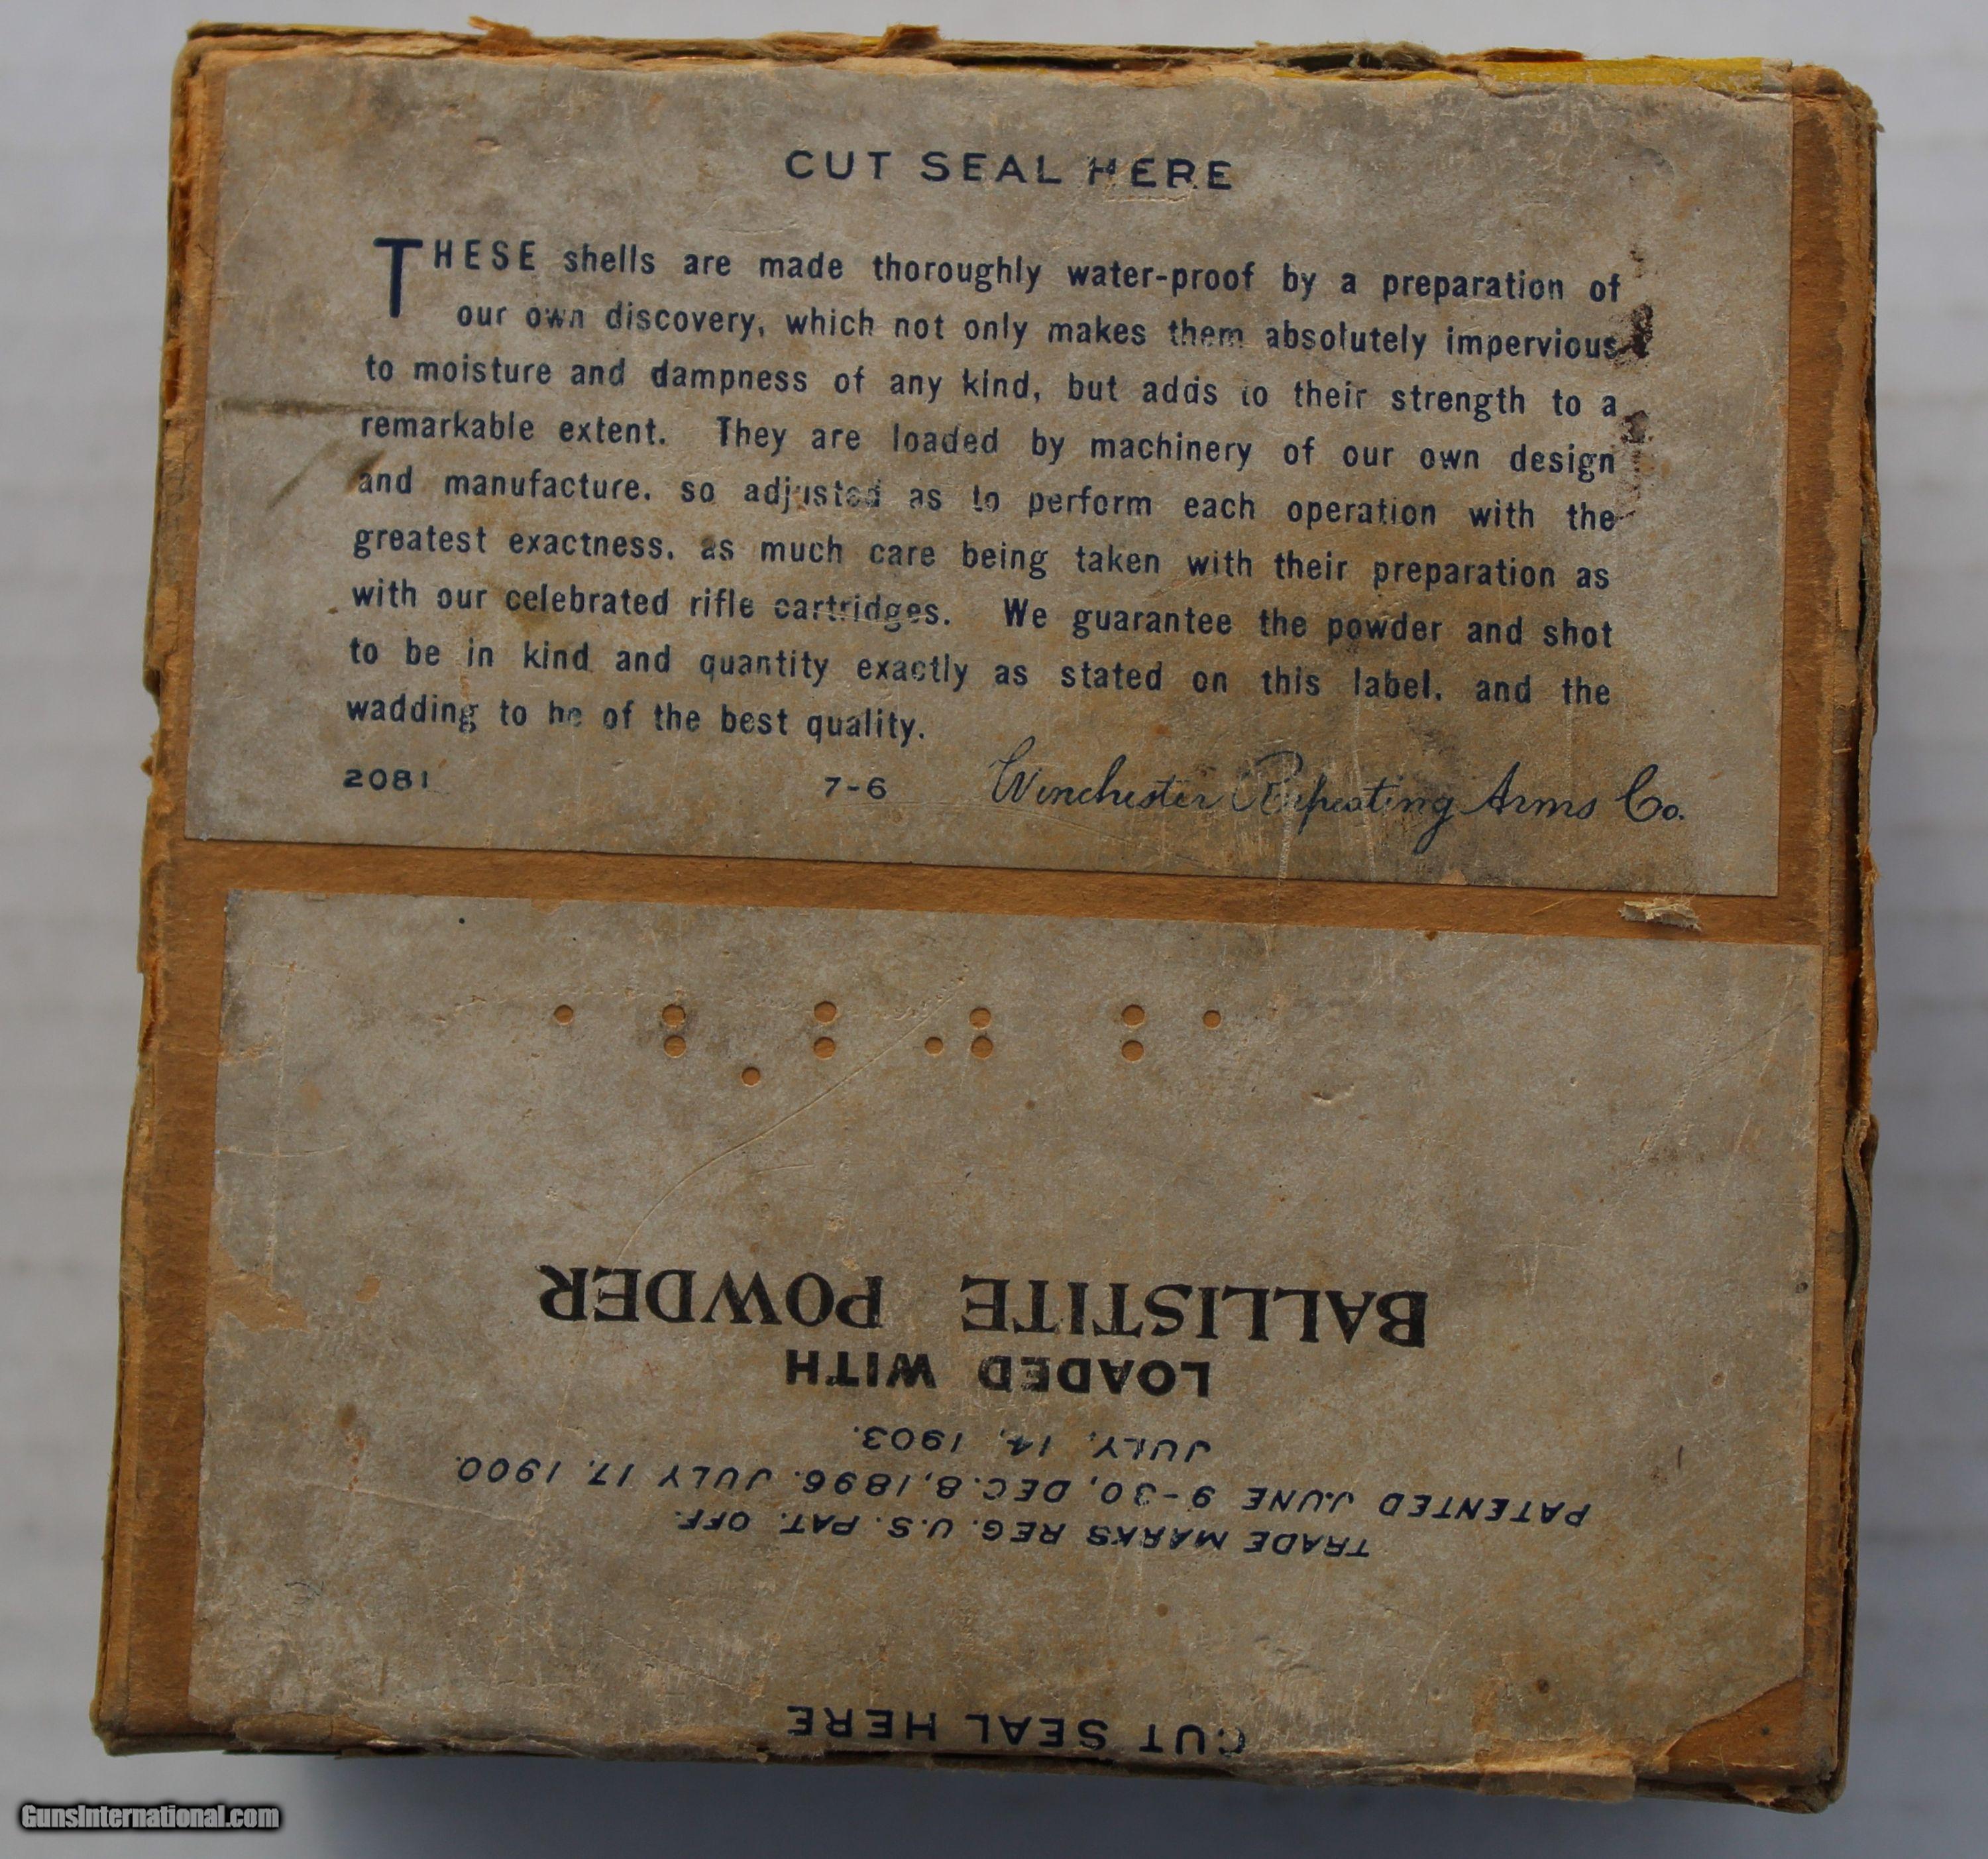 CUT SEAL HERE
THESE shells are made thoroughly water-proof by a preparation of
our own discovery, which not only makes them absolutely impervious
to moisture and dampness of any kind, but adds to their strength to a
remarkable extent. They are loaded by machinery of our own design
and manufacture, so adjusted as to perform each operation with the
greatest exactness, as much care being taken with their preparation as
with our celebrated rifle cartridges. We guarantee the powder and shot
to be in kind and quantity exactly as stated on this label, and the
wadding to be of the best quality.
2081 7-6 Winchester Repeating Arms Co.
CUT SEAL HERE
TRADE MARKS REG. U.S. PAT. OFF.
PATENTED JUNE 9-30, DEC. 8, 1896. JULY 17, 1900.
JULY, 14, 1903.
LOADED WITH
BALLISTITE POWDER
GunsInternational.com